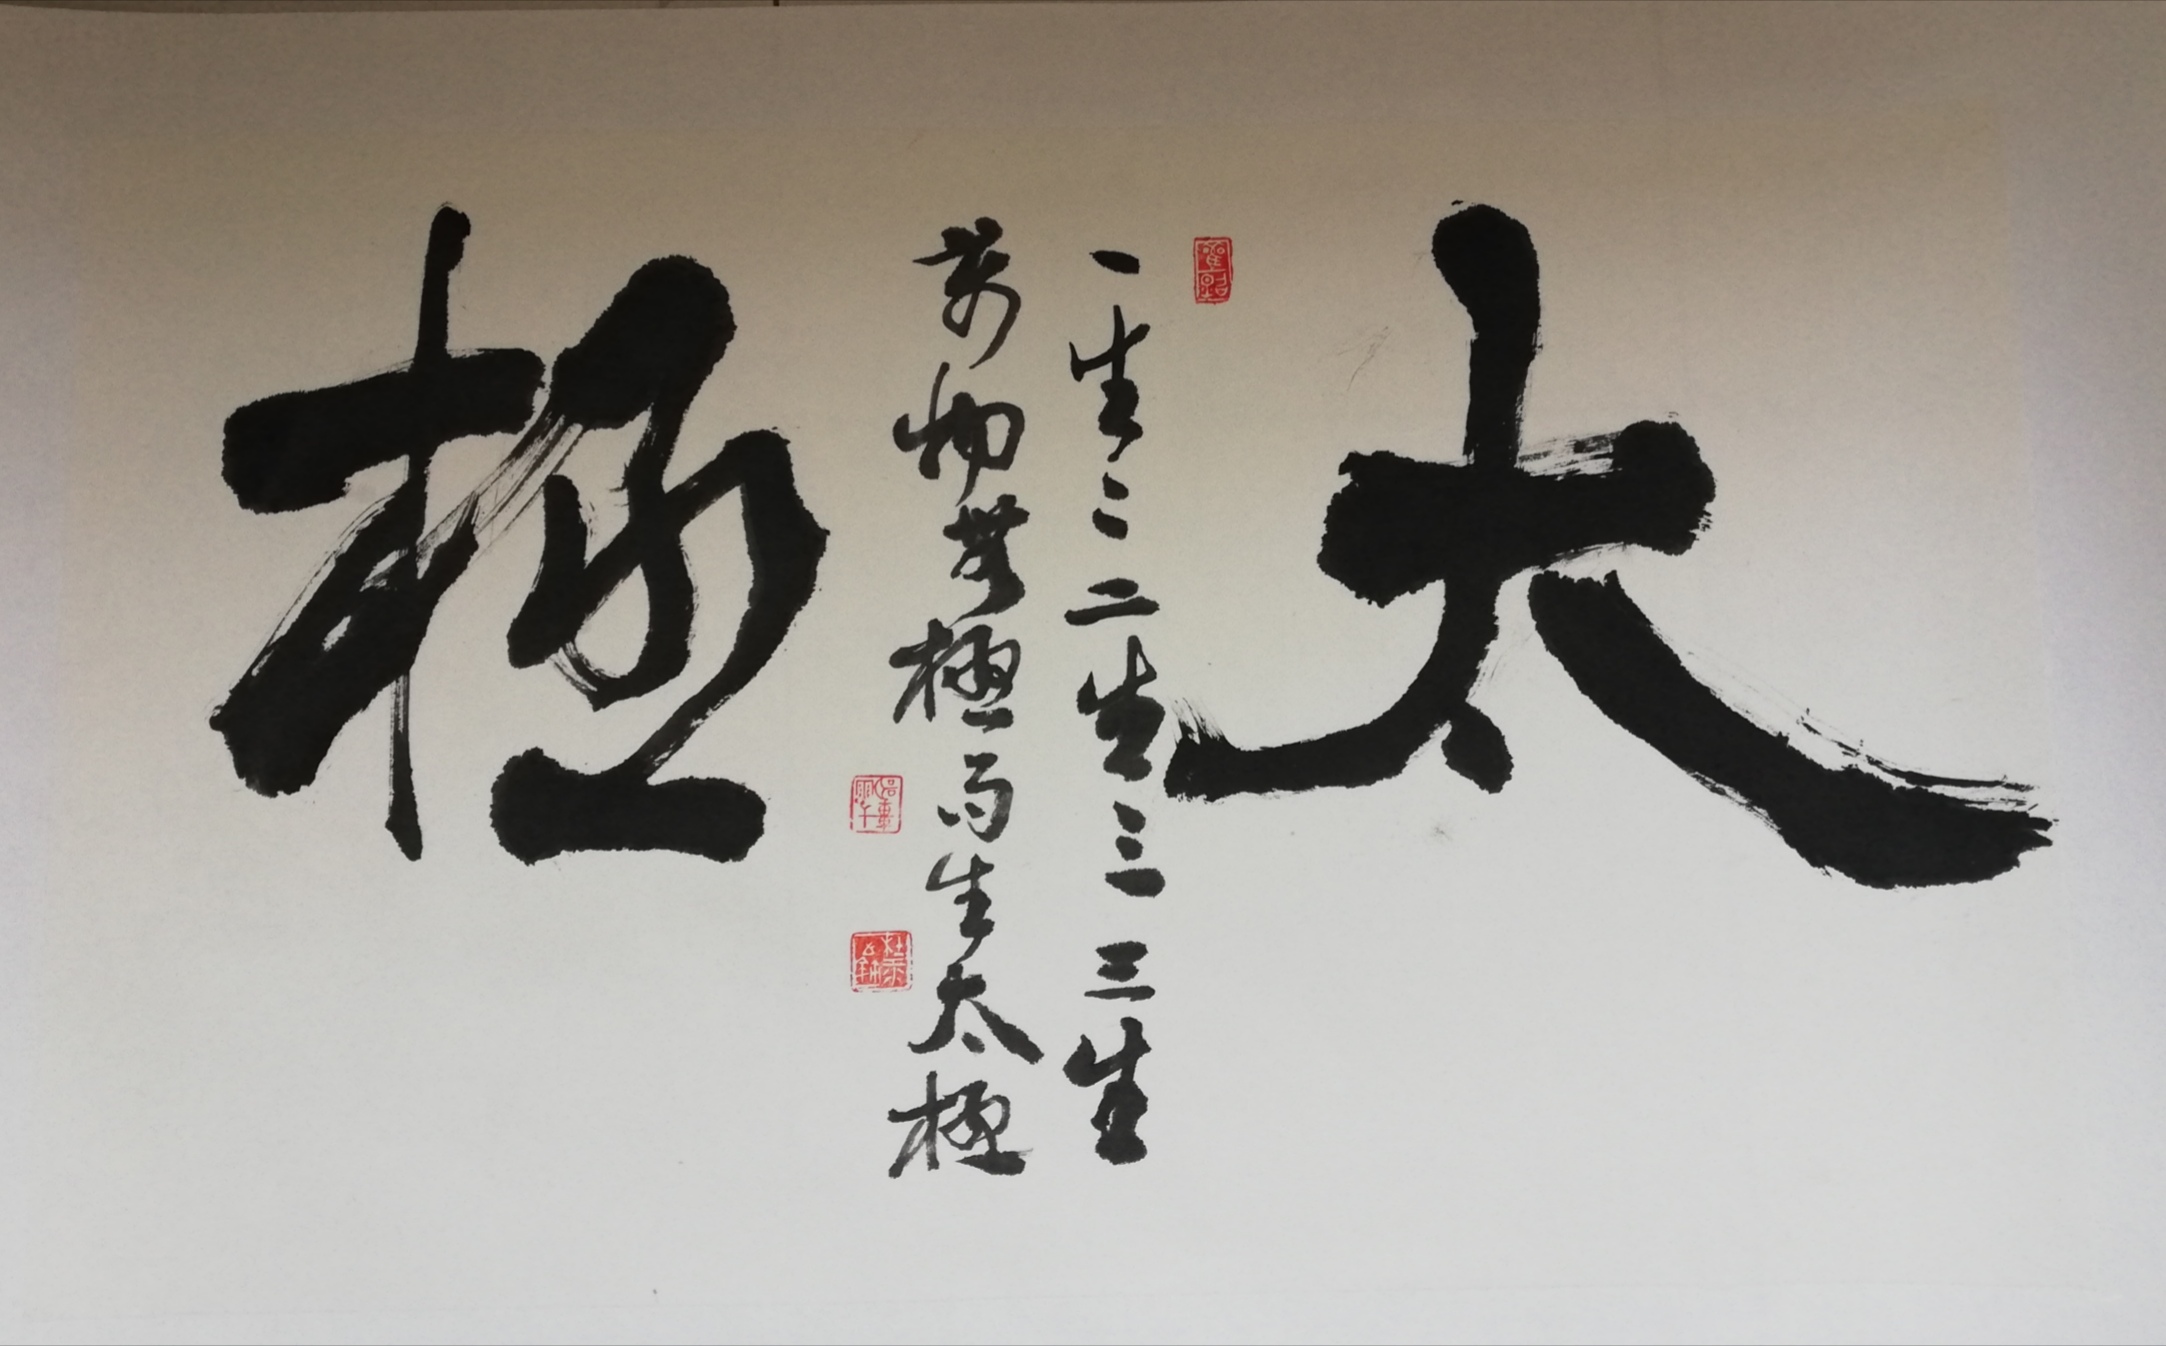 太極
一生二二生三三生
萬物無極而生太極